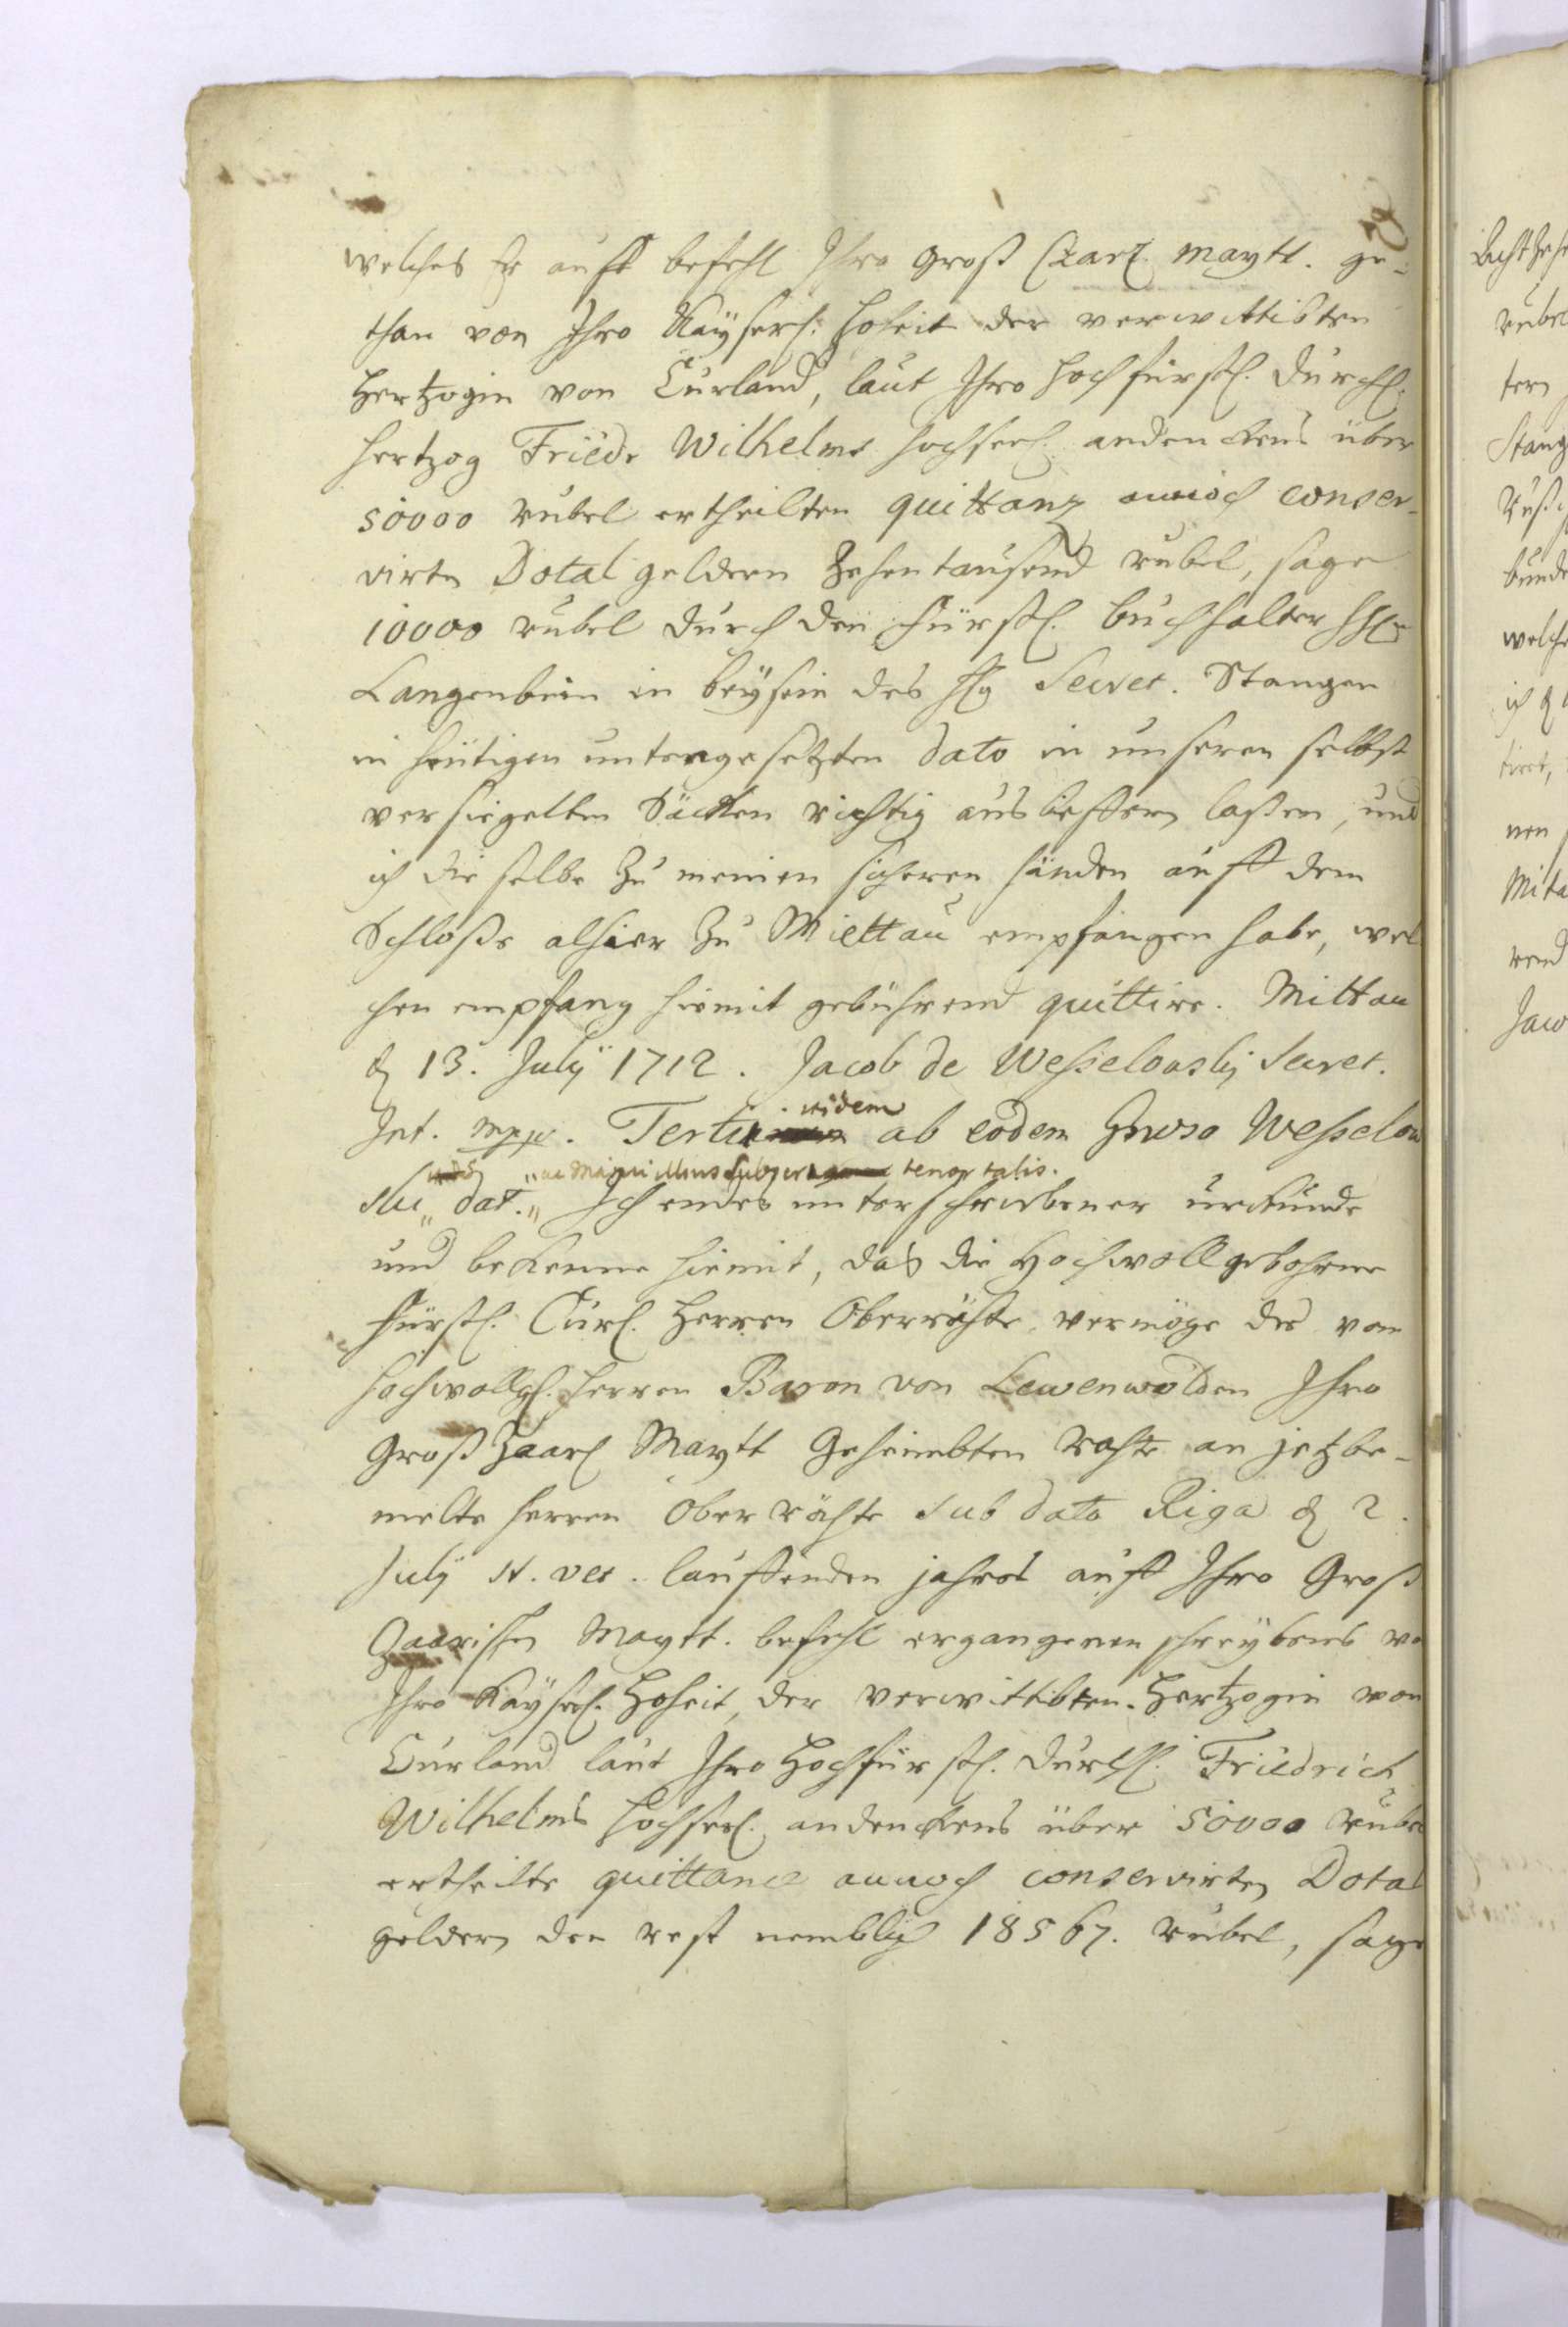 welches Er auff befehl Ihro Groß Czarl. Maytt. ge-
than von Ihro Kayserl. Hoheit der verwittibten
Hertzogin von Curland, laut Ihro Hochfürstl. Durchl.
Hertzog Friedr Wilhelms Hochseel. andenckens über
50000 rubel ertheilten quittanz annoch conser-
virten Dotal geldern Zehentausend rubel, sage
10000 rubel durch den Fürstl. buchhalter
Langenbein in beysein des Secret. Stangen
in heütigen untengesetzten dato in unseren selbst
versiegelten Säcken richtig ausliefern laßen, und
ich die selbe Zu meinen sicheren händen auff dem
Schloße alhier Zu Miettau empfangen habe, wel
chen empfang hiemit gebührend quittire. Mittau
d 13. July 1712. Jacob de Wesselovsky Secret.
Int. mpp. itidem ab eodem Gnoso Wesselow
ski dat. tenor talis. Ich endes unterschriebener urkunde
und bekenne hiemit, das die Hochwollgebohrne
Fürstl. Curl. Herren Oberräthe, vermöge des vom
Hochwollgb. Herren Baron von Lewenwolden Ihro
Groß Zaarl Maytt Geheimbten rahte an jetzbe-
melte Herren Ober räthe sub dato Riga d 2.
July st. vet. lauffenden jahres auff Ihro Groß
Zaarischen Maytt. befehl ergangenen schreybens
Ihro Kayserl. Hoheit, der verwittibten Hertzogin von
Curland laut Ihro Hochfürstl. Durchl. Friedrich
Wilhelms Hochseel. andenckens über 50000 rubel
ertheilte quittance annoch conservirten Dotal
geldern den rest nemblich 18567. rubel, sage
Acht Zehe
rubel
tern
Stang
bunde
welche
tiret,
nen
Mita